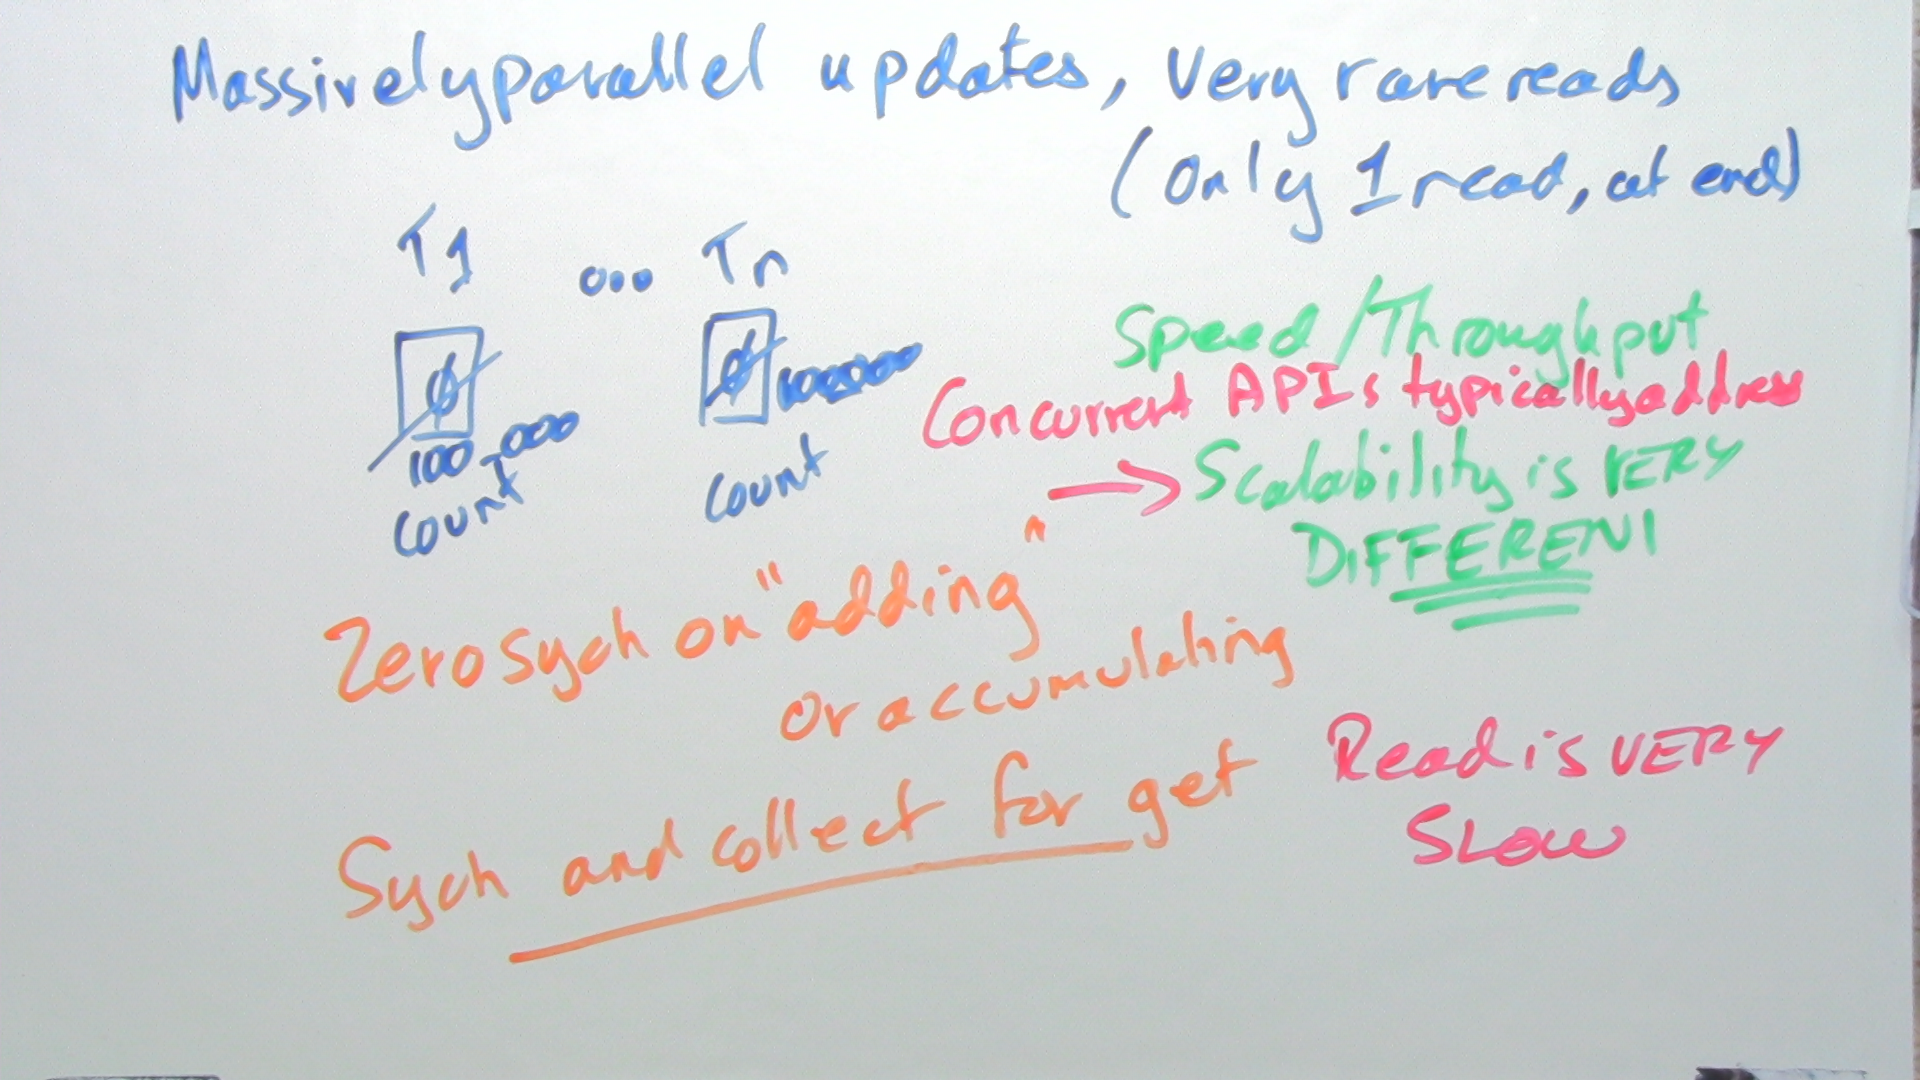 Massively parallel updates, very rare reads
(only 1 read, at end)
T1 ... Tn
0 0
100,000 100000
count count
Speed/Throughput
Concurrent APIs typically address
→ Scalability is VERY
DIFFERENT
Zero sych on "adding"
or accumulating
Sych and collect for get
Read is VERY
SLOW